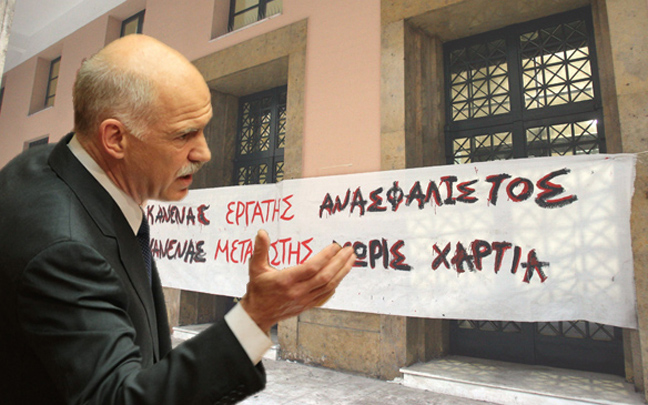 ΚΑΝΕΝΑΣ ΕΡΓΑΤΗΣ ΑΝΑΣΦΑΛΙΣΤΟΣ
ΚΑΝΕΝΑΣ ΜΕΤΑΝΑΣΤΗΣ ΧΩΡΙΣ ΧΑΡΤΙΑ